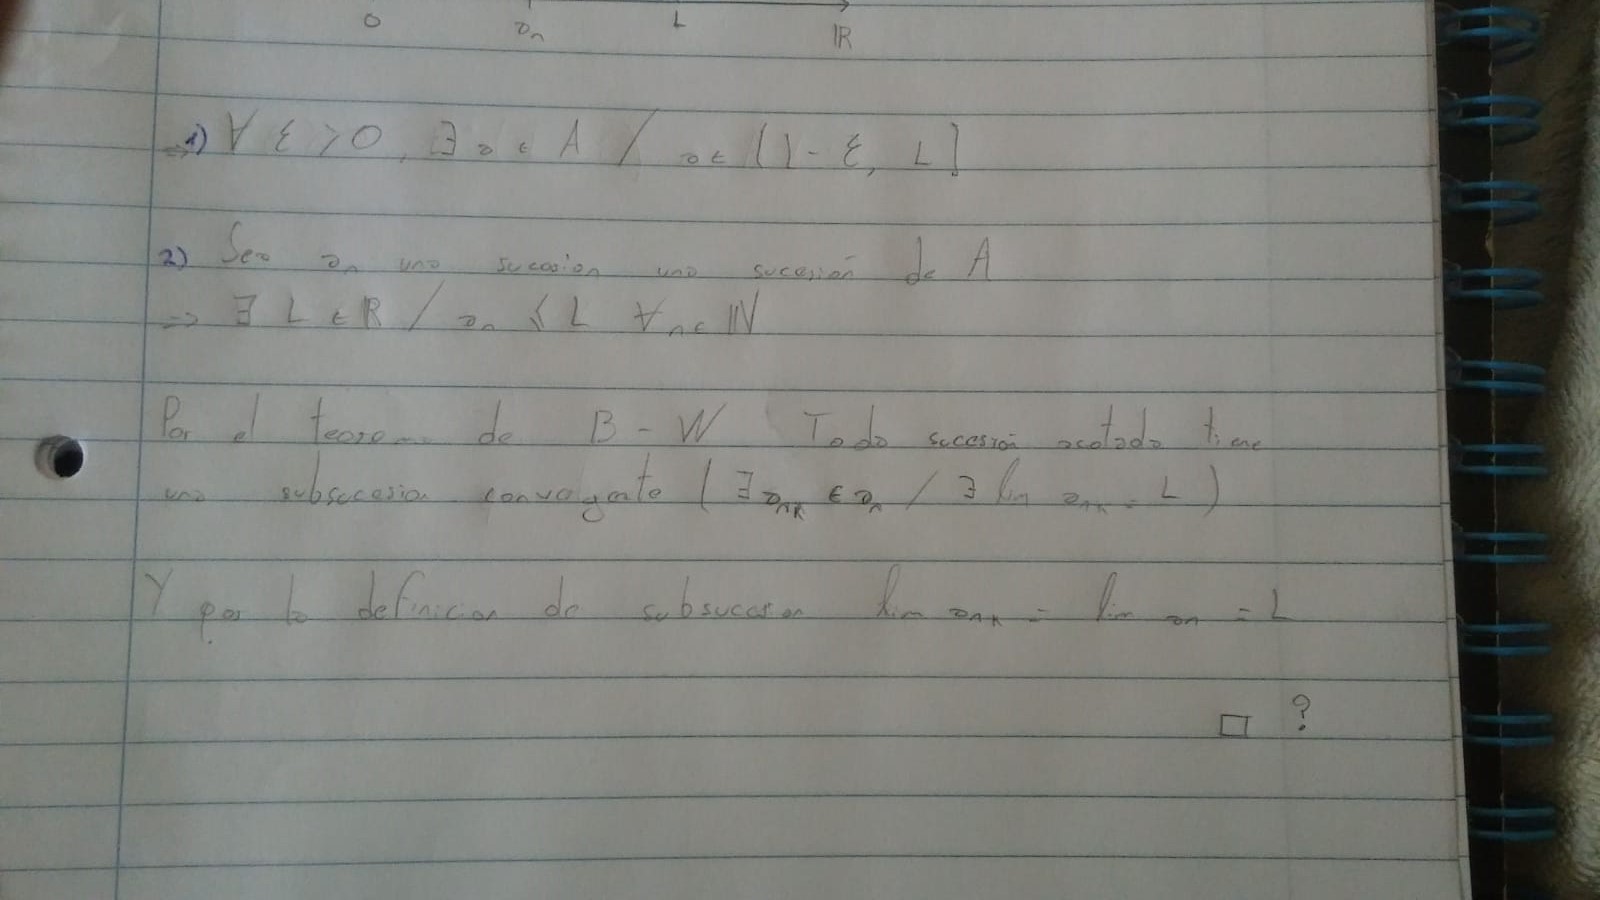 0 aₙ L ℝ
⇒1) ∀ ε > 0, ∃ a ∈ A / a ∈ (l - ε, L]
2) Sea aₙ una sucesion una sucesión de A
⇒ ∃ L ∈ ℝ / aₙ ≤ L ∀n ∈ ℕ
Por el teorema de B - W Toda sucesión acotada tiene
una subsucesion convergente (∃ aₙₖ ∈ aₙ / ∃ lim aₙₖ = L)
Y por la definicion de subsucesion lim aₙₖ = lim aₙ = L
□ ?